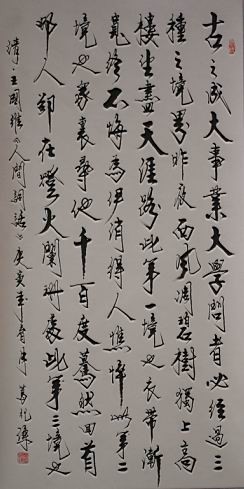 古之成大事業大學問者必經過三
種之境界昨夜西風凋碧樹獨上高
樓望盡天涯路此第一境也衣帶漸
寬終不悔為伊消得人憔悴此第二
境也眾裏尋他千百度驀然回首
那人卻在燈火闌珊處此第三境也
清·王國維《人間詞話》庚寅年春月